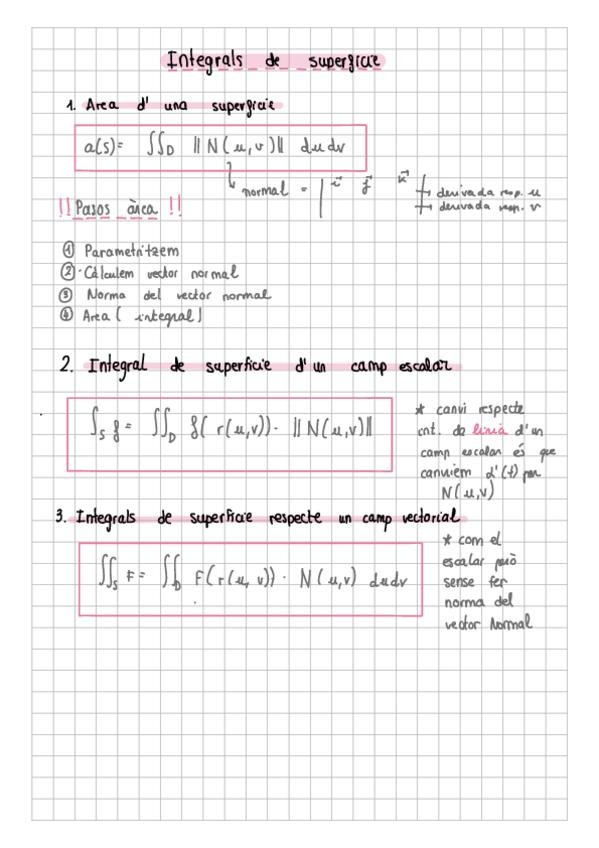 Integrals de superfície
1. Area d' una superfície
a(S)= ∬_D ||N(u,v)|| dudv
normal = | i⃗ j⃗ k⃗
derivada resp. u
derivada resp. v
!! Pasos àrea !!
① Parametritzem
② Càlculem vector normal
③ Norma del vector normal
④ Area ( integral)
2. Integral de superfície d'un camp escalar
∫_S f = ∬_D f( r(u,v)) · ||N(u,v)||
* canvi respecte
int. de linia d'un
camp escalar és que
canviem d'(t) per
N(u,v)
3. Integrals de superfície respecte un camp vectorial
∬_S F = ∬_D F(r(u,v)) · N(u,v) dudv
* com el
escalar però
sense fer
norma del
vector Normal